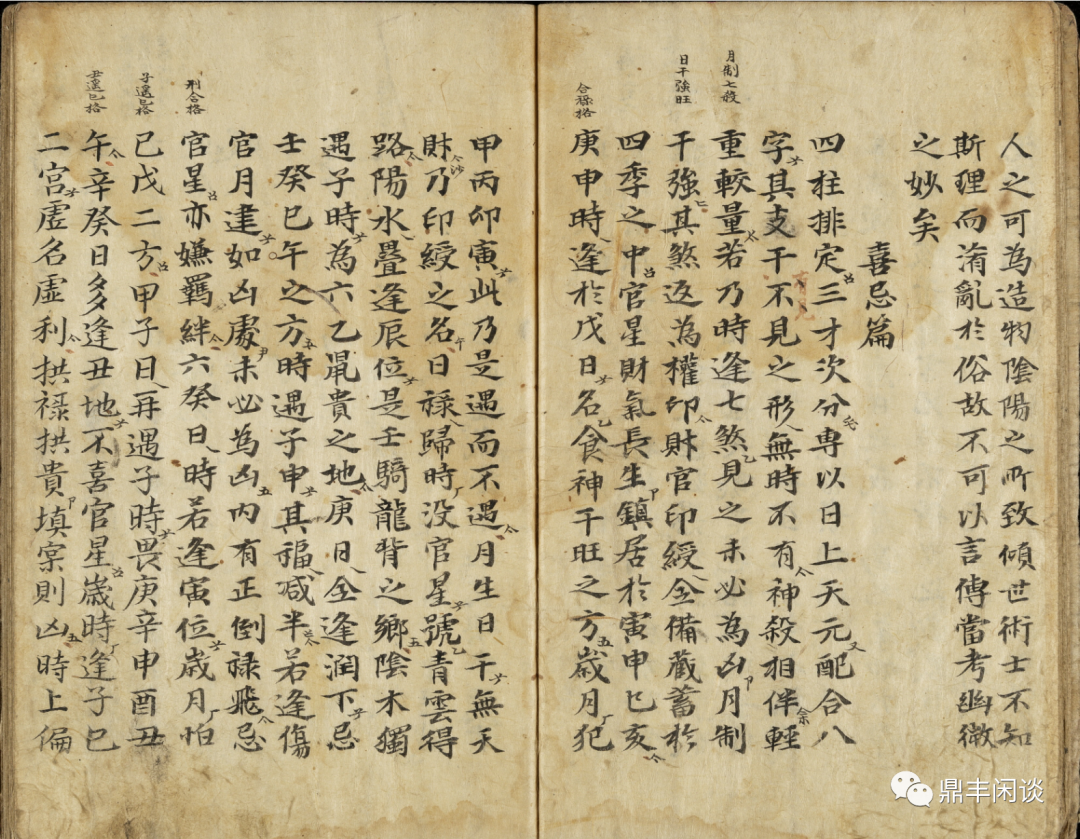 人之可為造物陰陽之所致傾世術士不知
斯理而淆亂於俗故不可以言傳當考幽微
之妙矣
喜忌篇
四柱排定三才次分専以日上天元配合八
字其支干不見之形無時不有神殺相伴輕
月制七殺
重較量若乃時逢七煞見之未必為凶月制
日干強旺
干強其煞返為權印財官印綬全備藏蓄於
四季之中官星財氣長生鎮居於寅申巳亥
合禄格
庚申時逢於戊日名食神干旺之方歲月犯
甲丙卯寅此乃是遇而不遇月生日干無天
財乃印綬之名日禄歸時没官星號青雲得
路陽水疊逢辰位是壬騎龍背之鄉陰木獨
遇子時為六乙鼠貴之地庚日全逢润下忌
壬癸巳午之方時遇子申其福减半若逢傷
官月建如凶處未必為凶内有正倒禄飛忌
刑合格
官星亦嫌羈絆六癸日時若逢寅位歲月怕
子遥巳格
已戊二方甲子日再遇子時畏庚辛申酉丑
丑遥巳格
午辛癸日多逢丑地不喜官星歲時逢子巳
二宮虛名虛利拱禄拱貴填宲則凶時上偏
鼎丰闲谈